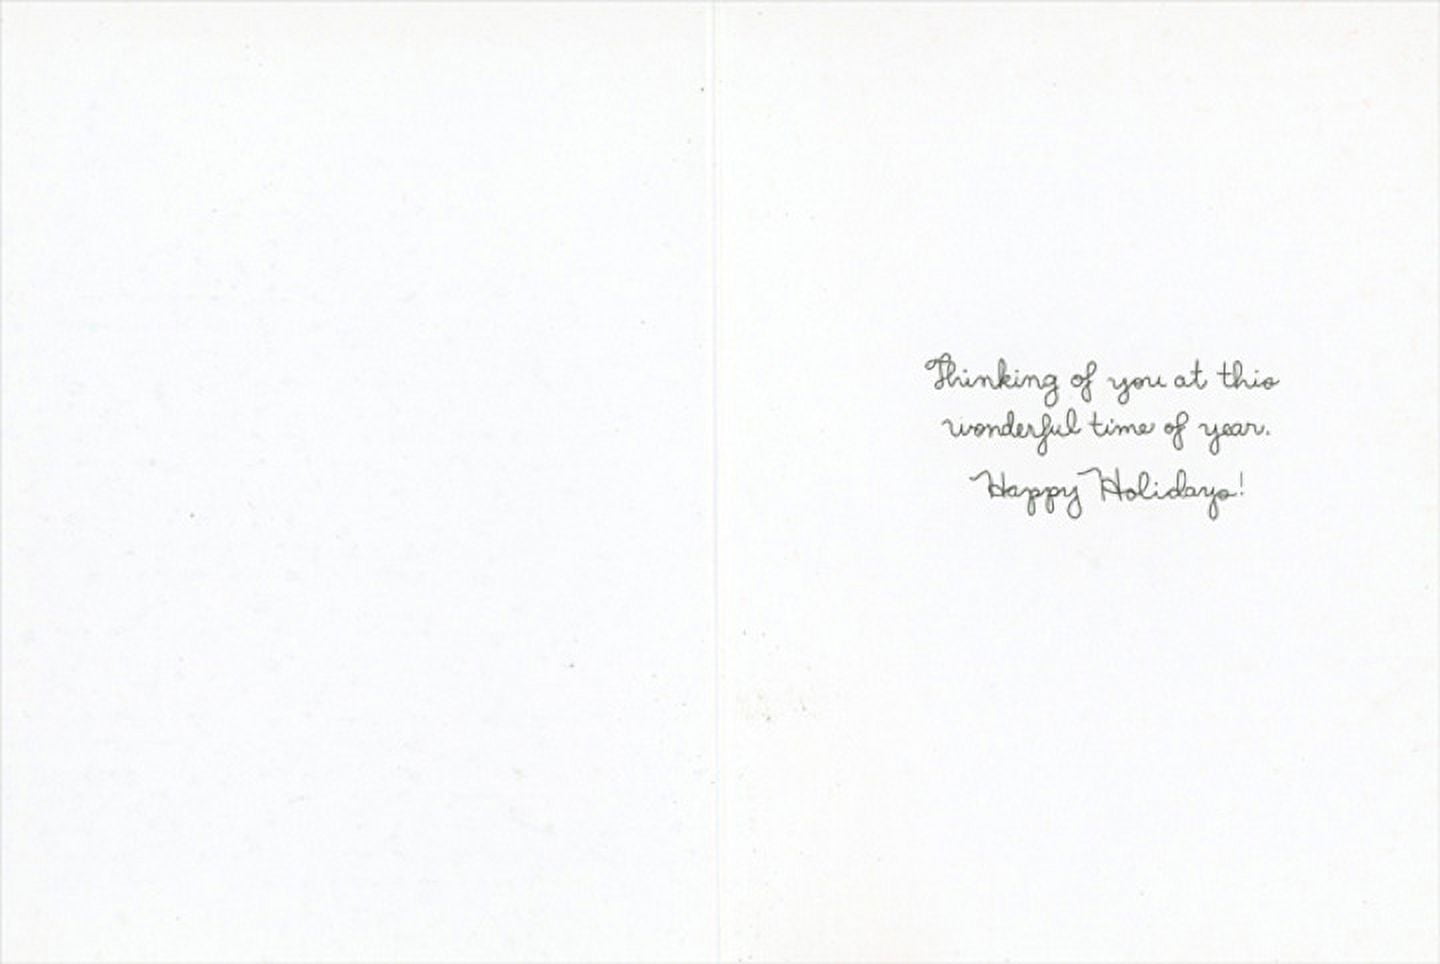 Thinking of you at this
wonderful time of year.
Happy Holidays!